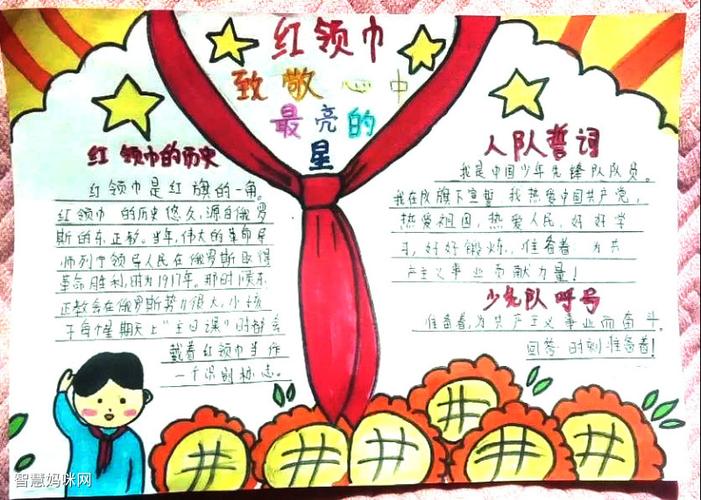 红领巾
致敬心中
最亮的
星
红领巾的历史
红领巾是红旗的一角。
红领巾 的历史悠久,源自俄罗
斯的东正教。当年,伟大的革命导
师列宁领导人民在俄罗斯取得
革命胜利,时为1917年。那时候东
正教会在俄罗斯势力很大,小孩
子每惺期天上"主日课"时都会
戴着红领巾当作
一个识别标志。
入队誓词
我是中国少年先锋队队员。
我在队旗下宣誓 我热爱中国共产党,
热爱祖国,热爱人民,好好学
习,好好锻炼,准备着 为共
产主义事业贡献力量!
少先队呼号
准备着,为共产主义事业而奋斗。
回答 时刻准备着!
智慧妈咪网